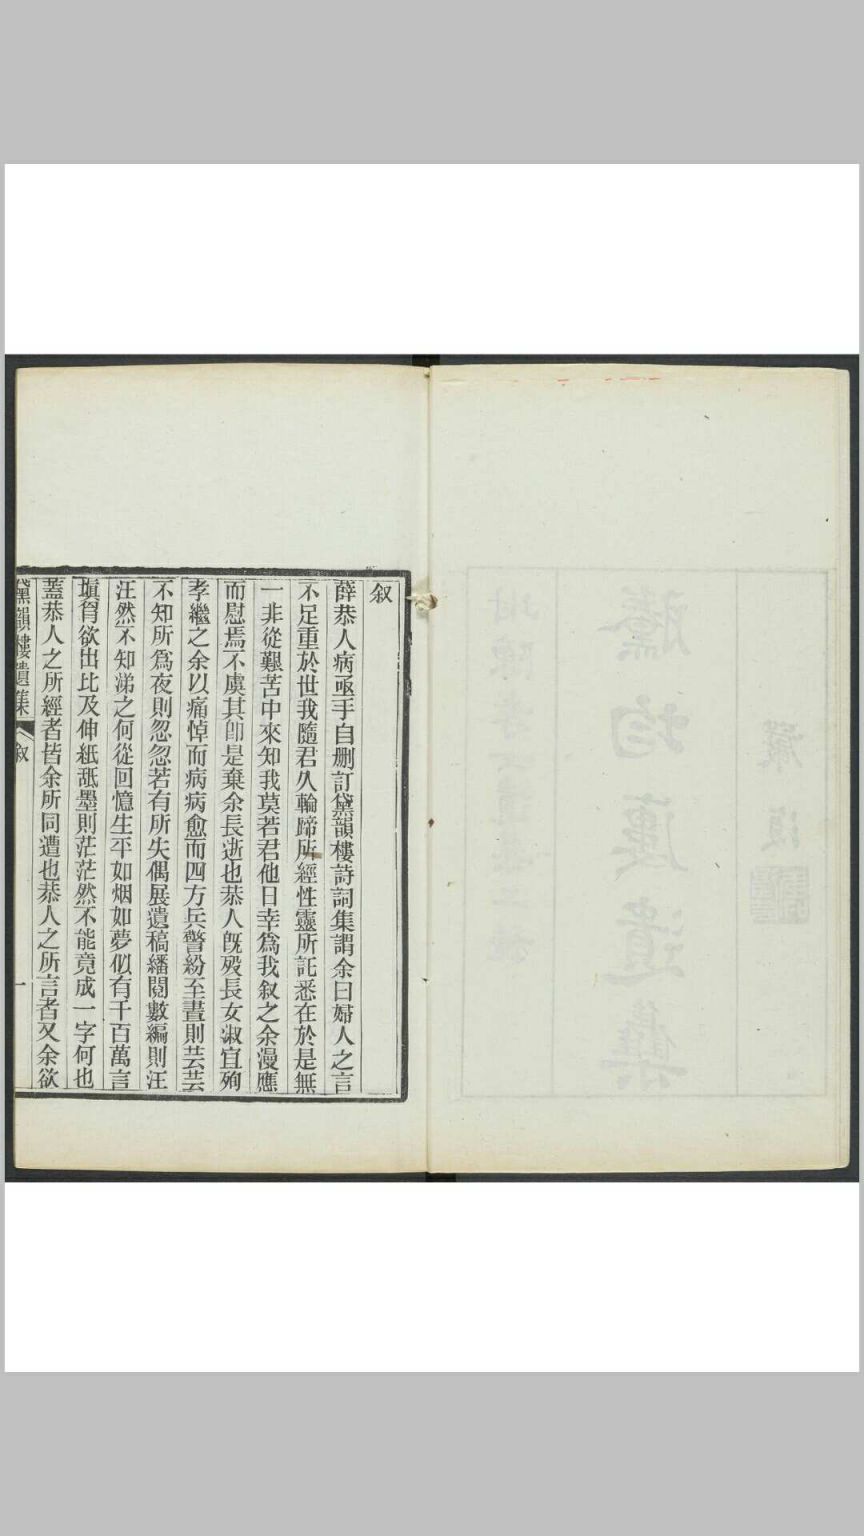 叙
薛恭人病亟手自刪訂黛韻樓詩詞集謂余曰婦人之言
不足重於世我隨君久輪蹄所經性靈所託悉在於是無
一非從艱苦中來知我莫若君他日幸爲我叙之余漫應
而慰焉不虞其卽是棄余長逝也恭人旣歿長女淑宜殉
孝繼之余以痛悼而病病愈而四方兵警紛至晝則芸芸
不知所爲夜則忽忽若有所失偶展遺稿繙閱數編則汪
汪然不知涕之何從回憶生平如烟如夢似有千百萬言
塡胷欲出比及伸紙舐墨則茫茫然不能竟成一字何也
蓋恭人之所經者皆余所同遭也恭人之所言者又余欲
黛韻樓遺集 叙 一